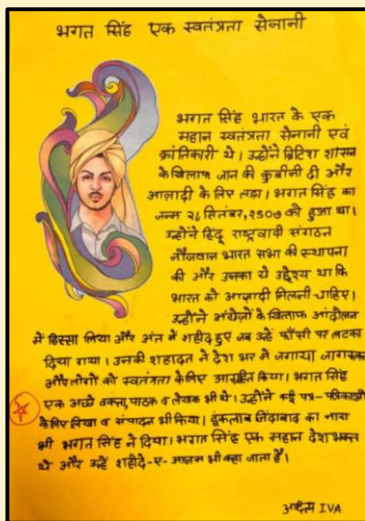 भगत सिंह एक स्वतंत्रता सेनानी
भगत सिंह भारत के एक
महान स्वतंत्रता सेनानी एवं
क्रांतिकारी थे। उन्होंने ब्रिटिश शासन
के खिलाफ जान की कुर्बानी दी और
आज़ादी के लिए लड़ा। भगत सिंह का
जन्म २८ सितंबर, १९०७ को हुआ था।
उन्होंने हिंदू राष्ट्रवादी संगठन
नौजवान भारत सभा की स्थापना
की और उनका ये उद्देश्य था कि
भारत को आज़ादी मिलनी चाहिए।
उन्होंने अंग्रेजों के खिलाफ आंदोलन
में हिस्सा लिया और अंत में शहीद हुए जब उन्हें फाँसी पर लटका
दिया गया। उनकी शहादत ने देश भर में जगाया जागरूक
और लोगों को स्वतंत्रता के लिए किया। भगत सिंह
एक अच्छे वक्ता, पाठक व लेखक भी थे। उन्होंने कई पत्र-पत्रिकाओं
के लिए लिखा व संपादन भी किया। इंकलाब जिंदाबाद का नारा
भी भगत सिंह ने दिया। भगत सिंह एक महान देशभक्त
थे और उन्हें शहीदे-ए-आजम भी कहा जाता है।
IVA